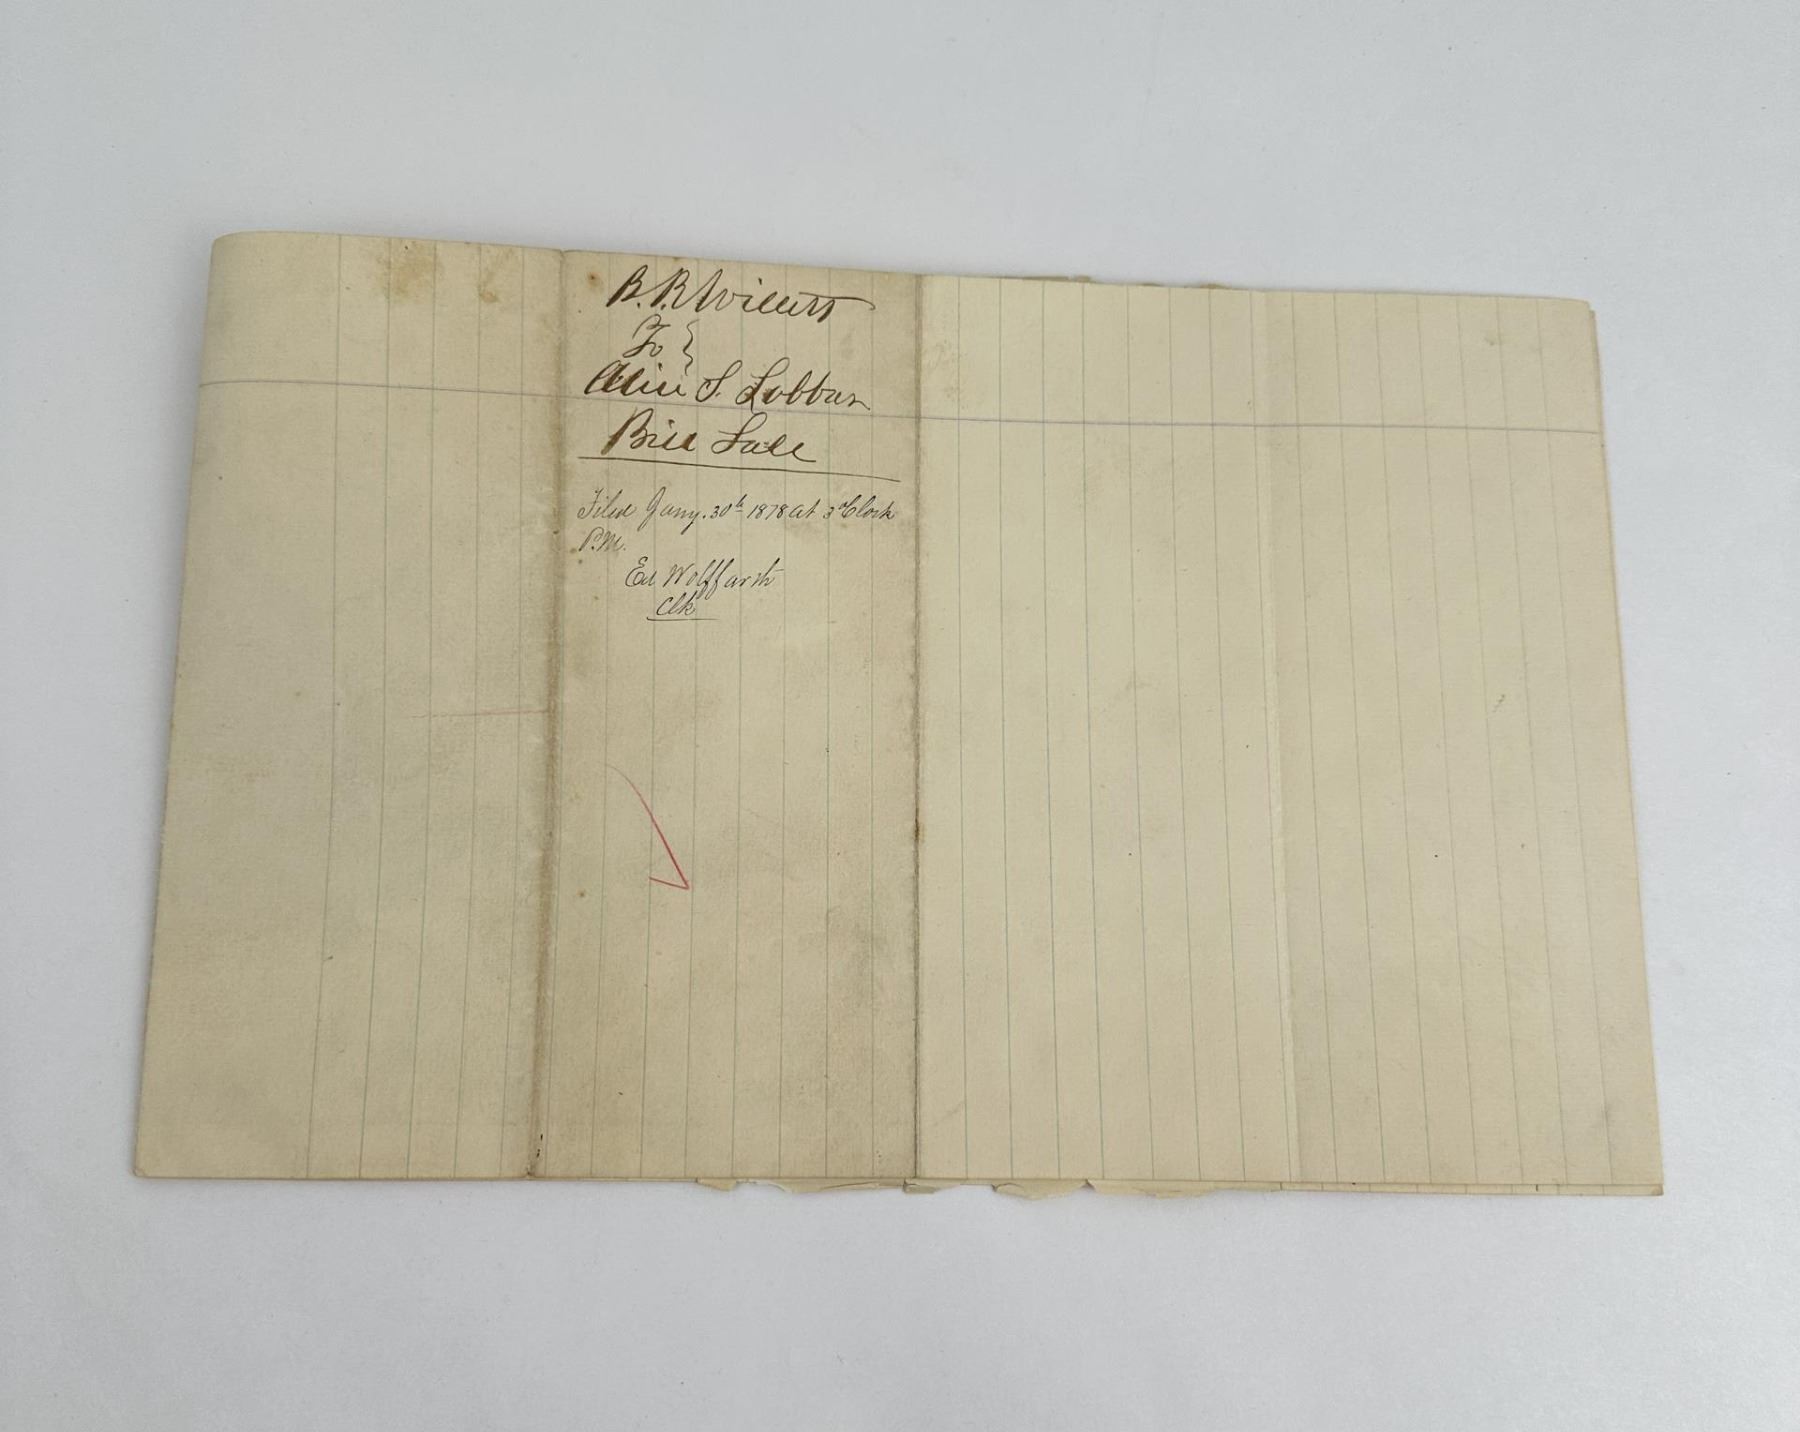 B. R. Willett
To }
Alice S. Lobban
Bill Sale
Filed Jany. 30th 1878 at 3 oClock
P.M.
Ed Wolffarth
Clk